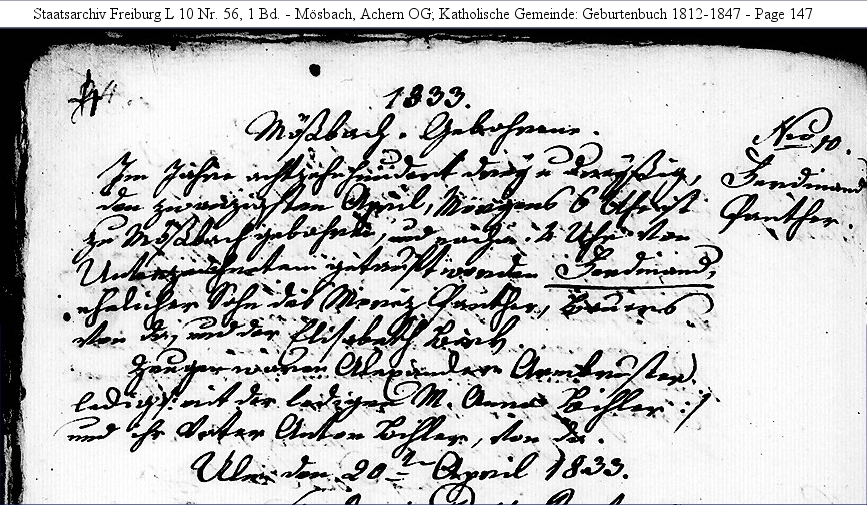 Staatsarchiv Freiburg L 10 Nr. 56, 1 Bd. - Mösbach, Achern OG; Katholische Gemeinde: Geburtenbuch 1812-1847 - Page 147
1833.
Mößbach. Gebohrene.
Nro 10.
Ferdinand
Panther.
Im Jahre achtzehnhundert drey u dreyßig,
den zwanzigsten April, Morgens 6 Uhr ist
zu Mößbach gebohren, und 2 Uhr von
Unterzeichnetem getauft worden Ferdinand,
ehelicher Sohn des Panther, Bauers
von da, und der Elisabeth
Zeugen waren Alexander Armbruster
ledig, mit der ledigen M. Anna Bihler
und ihr Vater Anton Bihler, von da.
Ulm den 20ten April 1833.